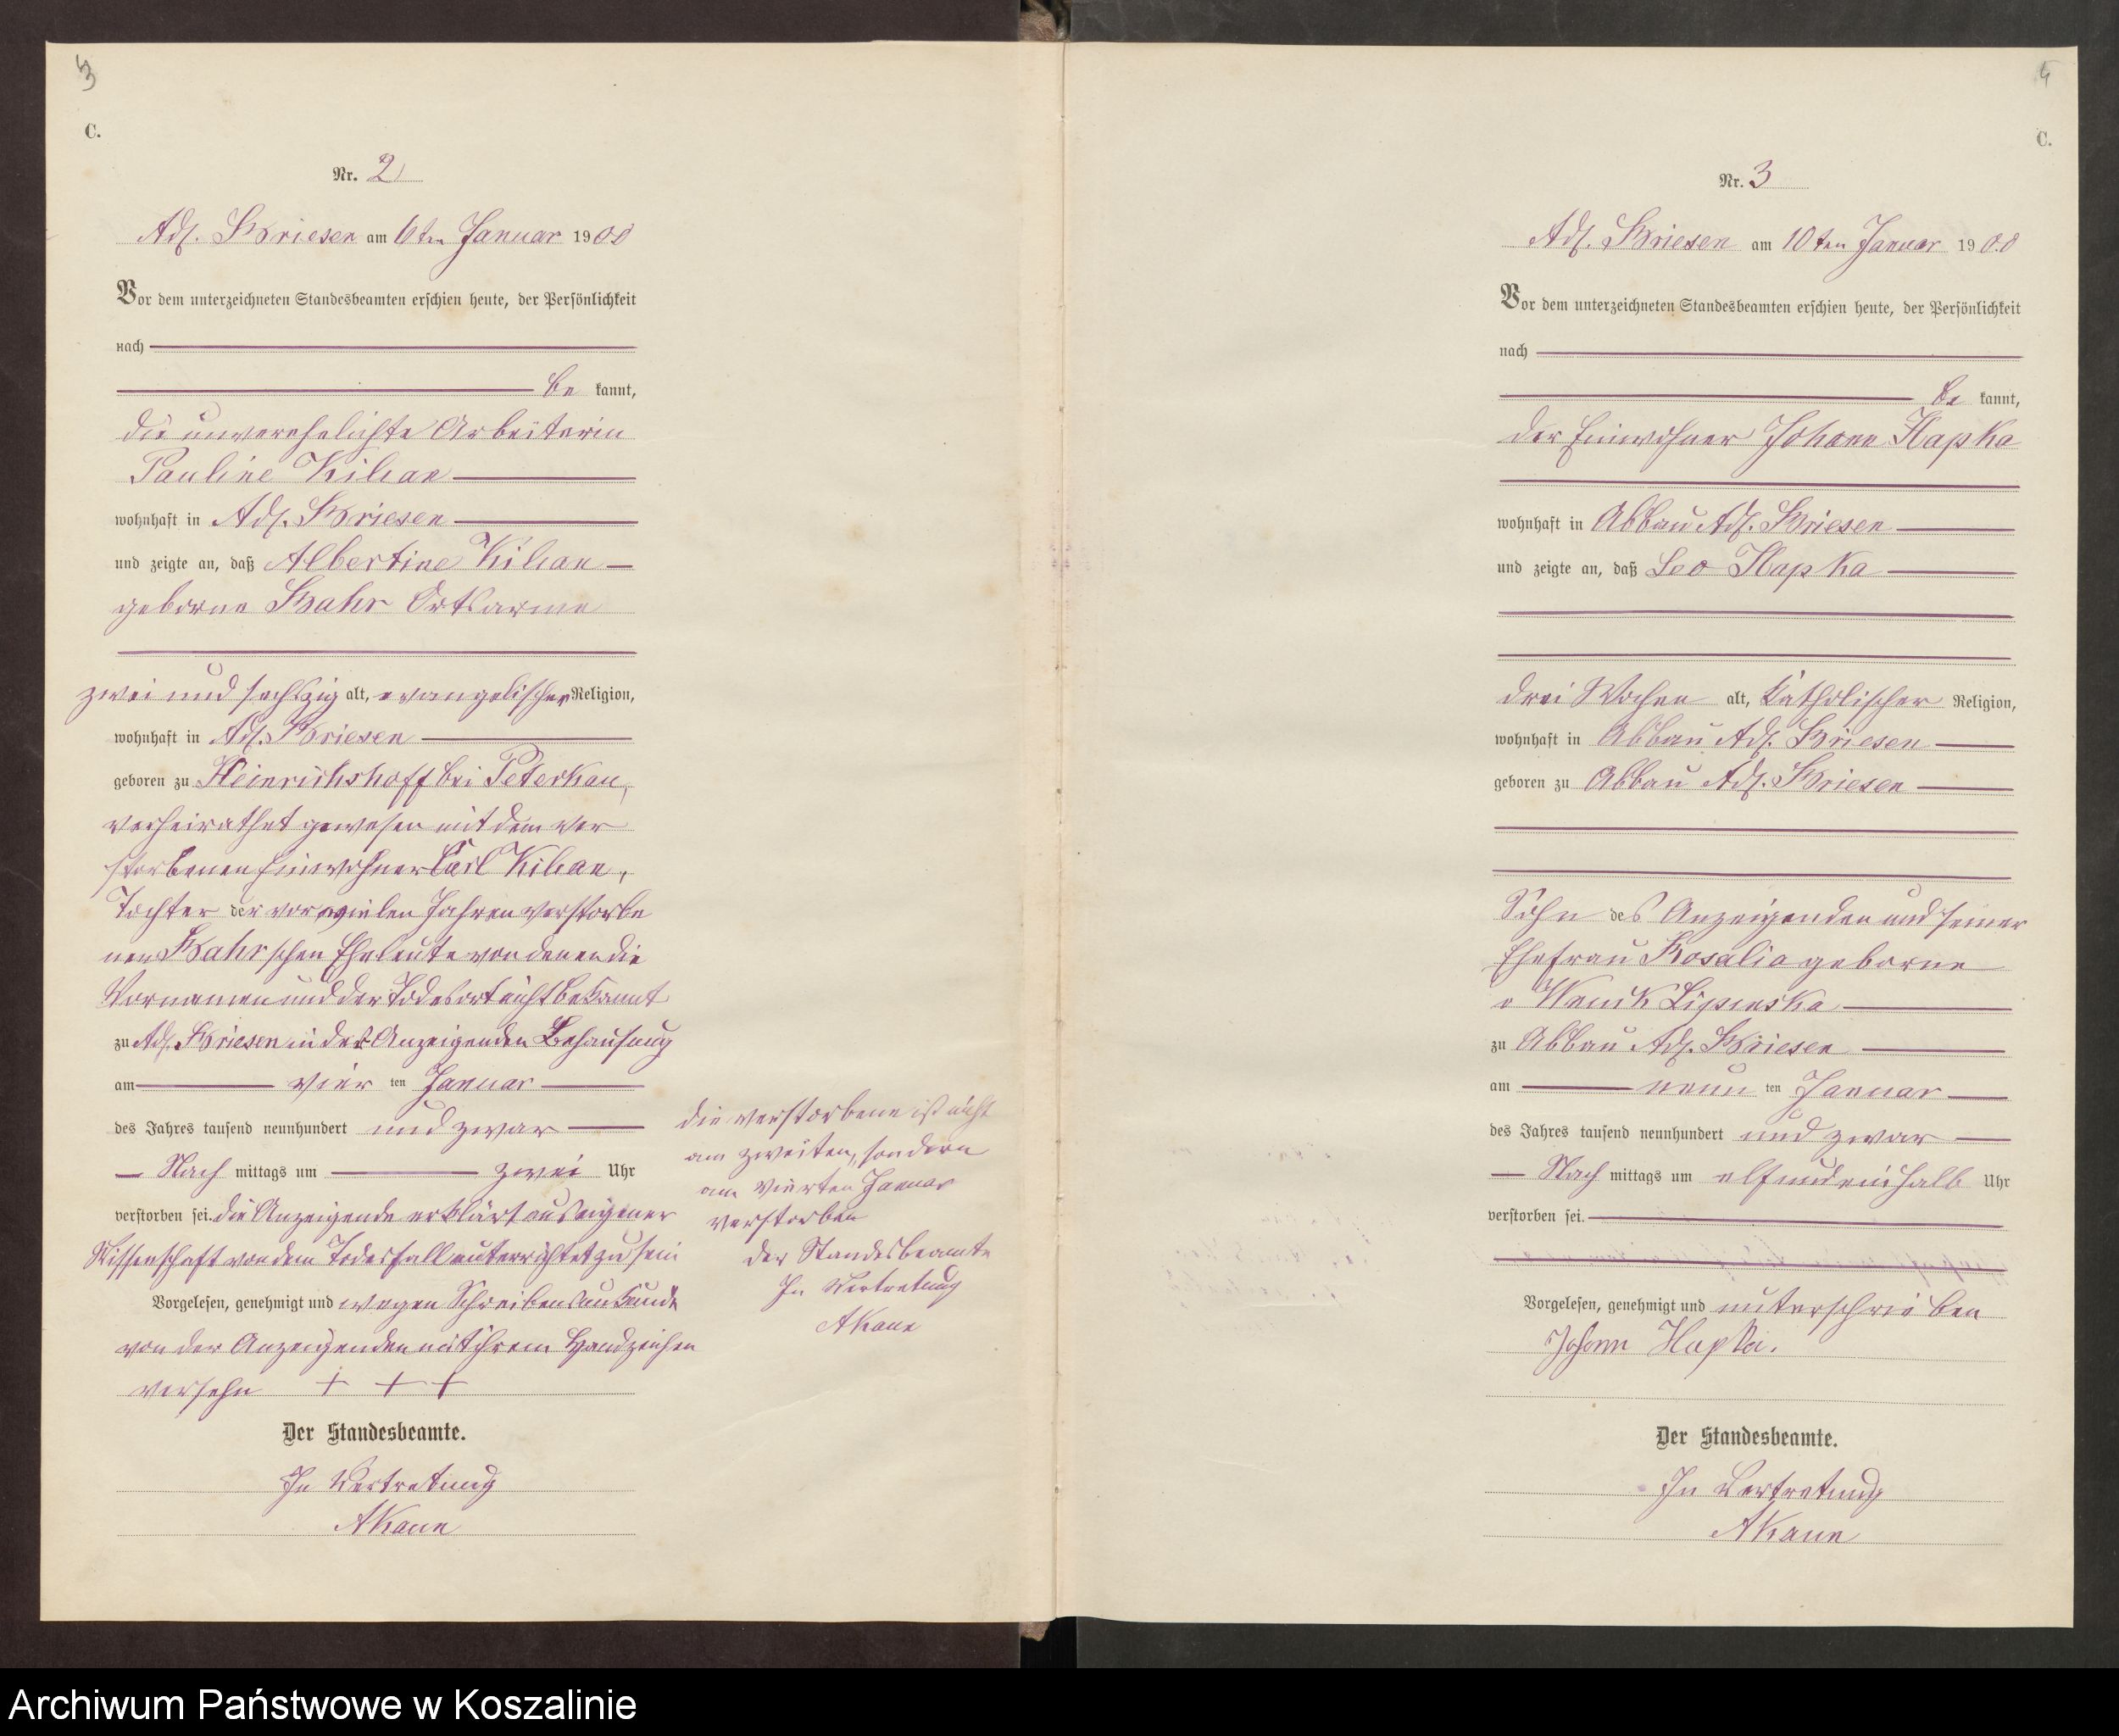 3
C.
Nr. 2
Adl. Briesen am 6ten Januar 1900
Vor dem unterzeichneten Standesbeamten erschien heute, der Persönlichkeit
nach
be kannt,
die unverehelichte Arbeiterin
Pauline Kilian
wohnhaft in Adl. Briesen
und zeigte an, daß Albertine Kilian
geborne Bahr Ortsarme
zwei und sechszig alt, evangelischer Religion,
wohnhaft in Adl. Briesen
geboren zu Heinrichshoff bei Peterkau,
verheirathet gewesen mit dem ver
storbenen Einwohner Carl Kilian,
Tochter der vor vielen Jahren verstorbe
nen Bahr'schen Eheleute von denen die
Vornamen und der Todesort nicht bekannt
zu Adl. Briesen in der Anzeigenden Behausung
am vier ten Januar
des Jahres tausend neunhundert und zwar
Nach mittags um zwei Uhr
verstorben sei. die Anzeigende erklärt aus eigener
Wissenschaft von dem Todesfall unterrichtet zu sein
Vorgelesen, genehmigt und wegen Schreibensunkunde
von der Anzeigenden mit ihrem Handzeichen
versehn + + +
Der Standesbeamte.
In Vertretung
AKann
die verstorbene ist nicht
am zweiten, sondern
am vierten Januar
verstorben
der Standesbeamte
In Vertretung
AKann
4
C.
Nr. 3
Adl. Briesen am 10ten Januar 1900
Vor dem unterzeichneten Standesbeamten erschien heute, der Persönlichkeit
nach
be kannt,
der Einwohner Johann Hapka
wohnhaft in Abbau Adl. Briesen
und zeigte an, daß Leo Hapka
drei Wochen alt, katholischer Religion,
wohnhaft in Abbau Adl. Briesen
geboren zu Abbau Adl. Briesen
Sohn des Anzeigenden und seiner
Ehefrau Rosalia geborne
v Wenck Lipinska
zu Abbau Adl. Briesen
am neun ten Januar
des Jahres tausend neunhundert und zwar
Nach mittags um elf und ein halb Uhr
verstorben sei.
Vorgelesen, genehmigt und unterschrieben
Johann Hapka.
Der Standesbeamte.
In Vertretung
AKann
Archiwum Państwowe w Koszalinie